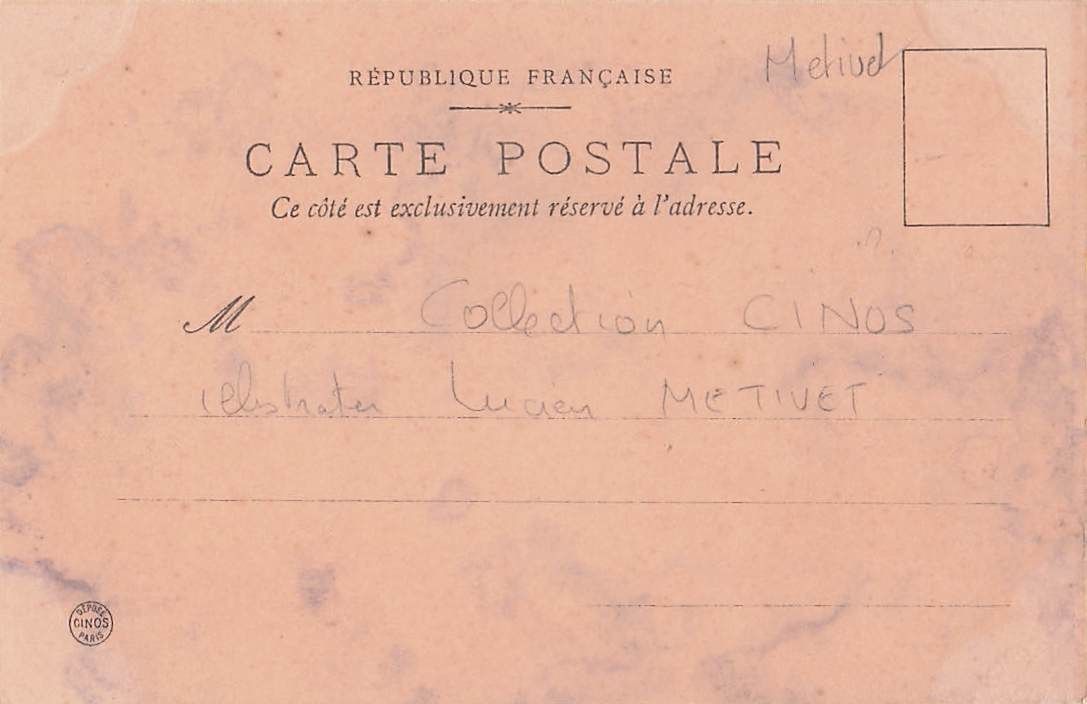 Metivet
RÉPUBLIQUE FRANÇAISE
CARTE POSTALE
Ce côté est exclusivement réservé à l'adresse.
M Collection CINOS
illustrater Lucien METIVET
DÉPOSÉ
CINOS
PARIS